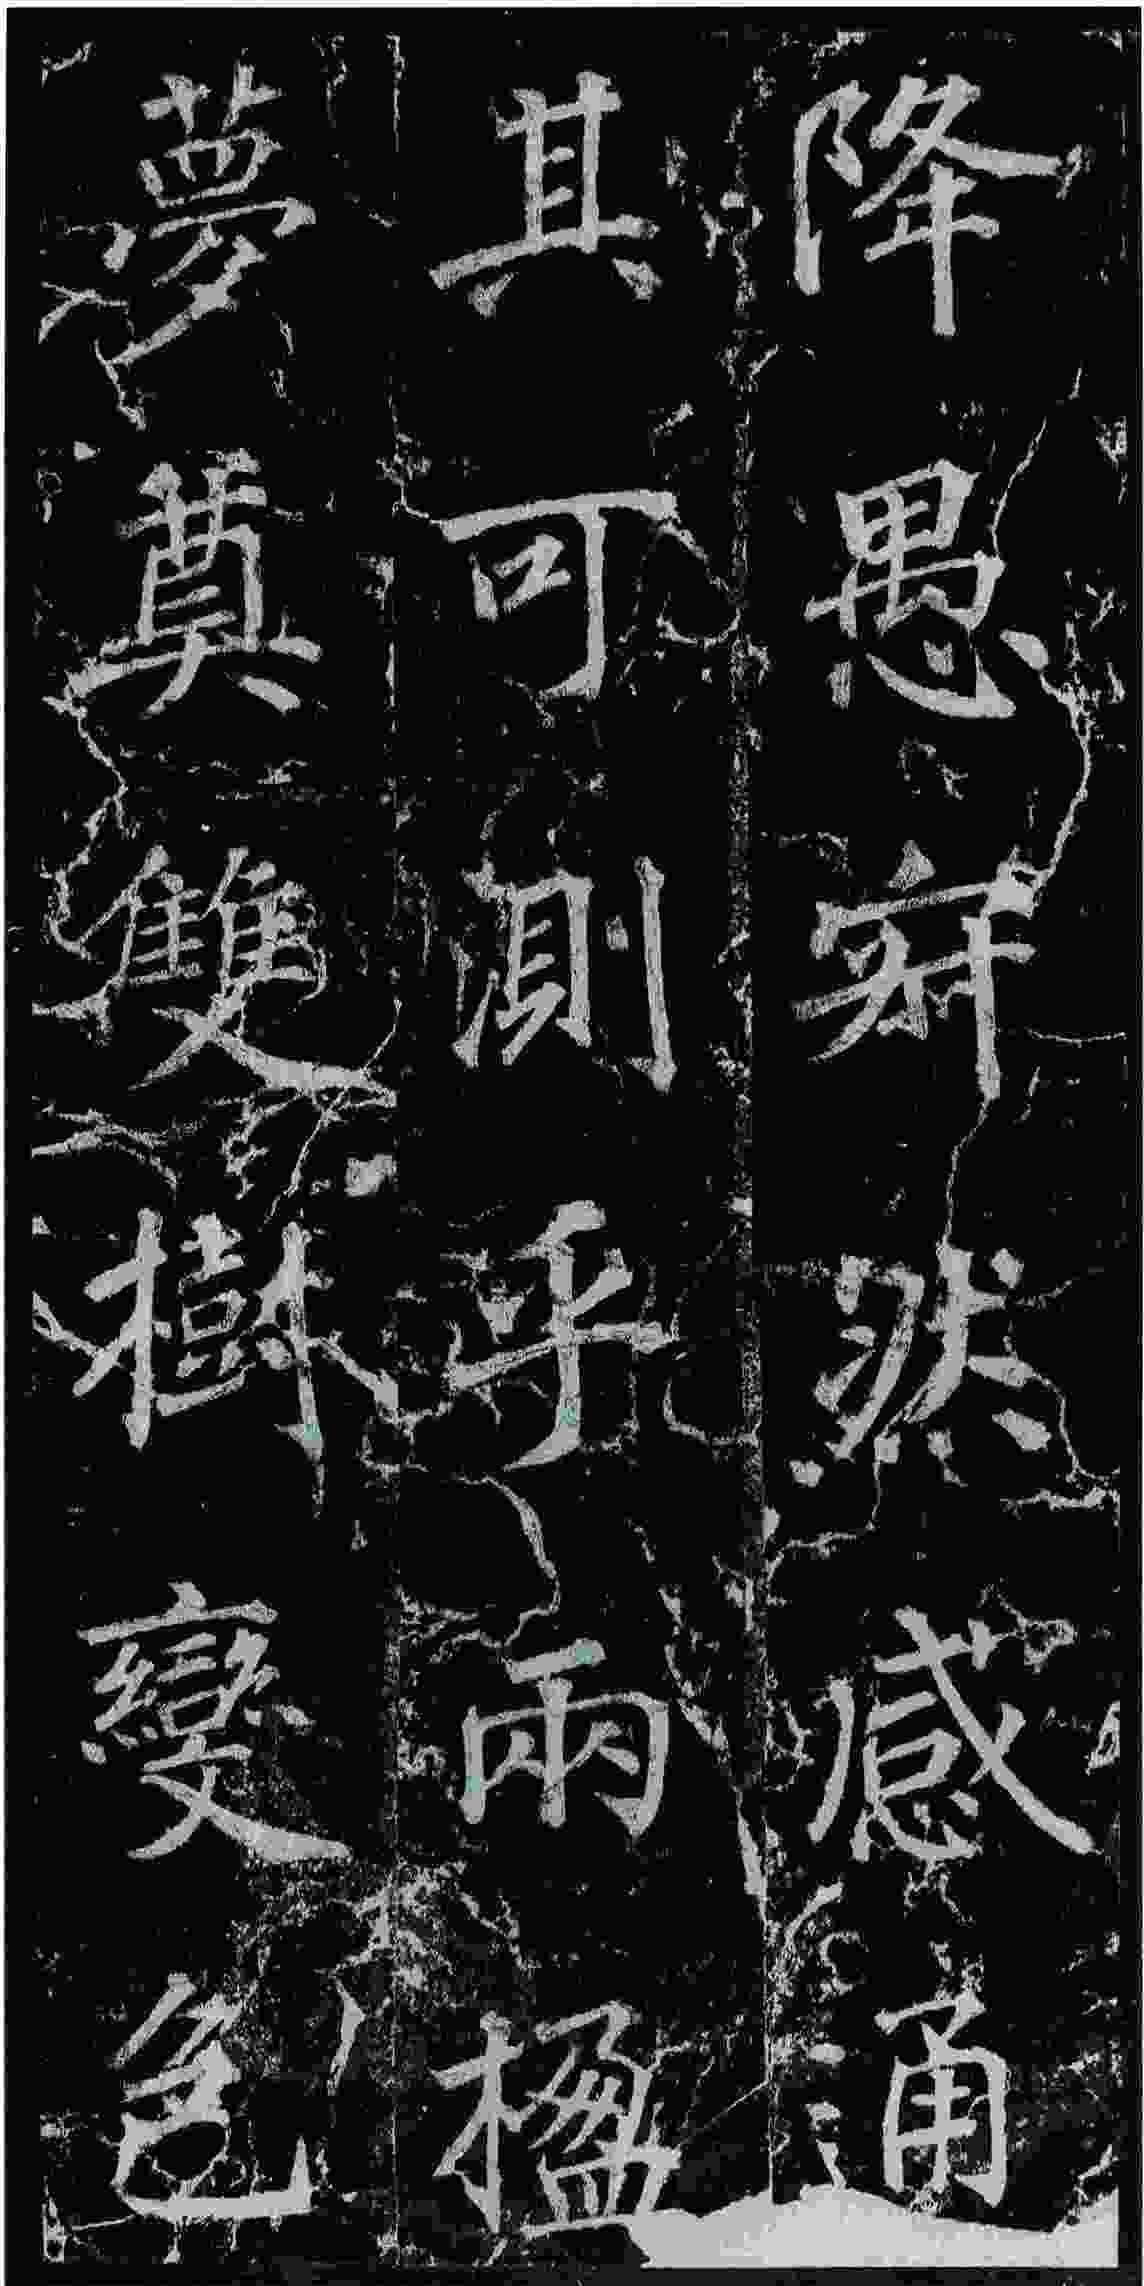 降愚寂然感通
其可測乎兩楹
夢奠雙樹變色